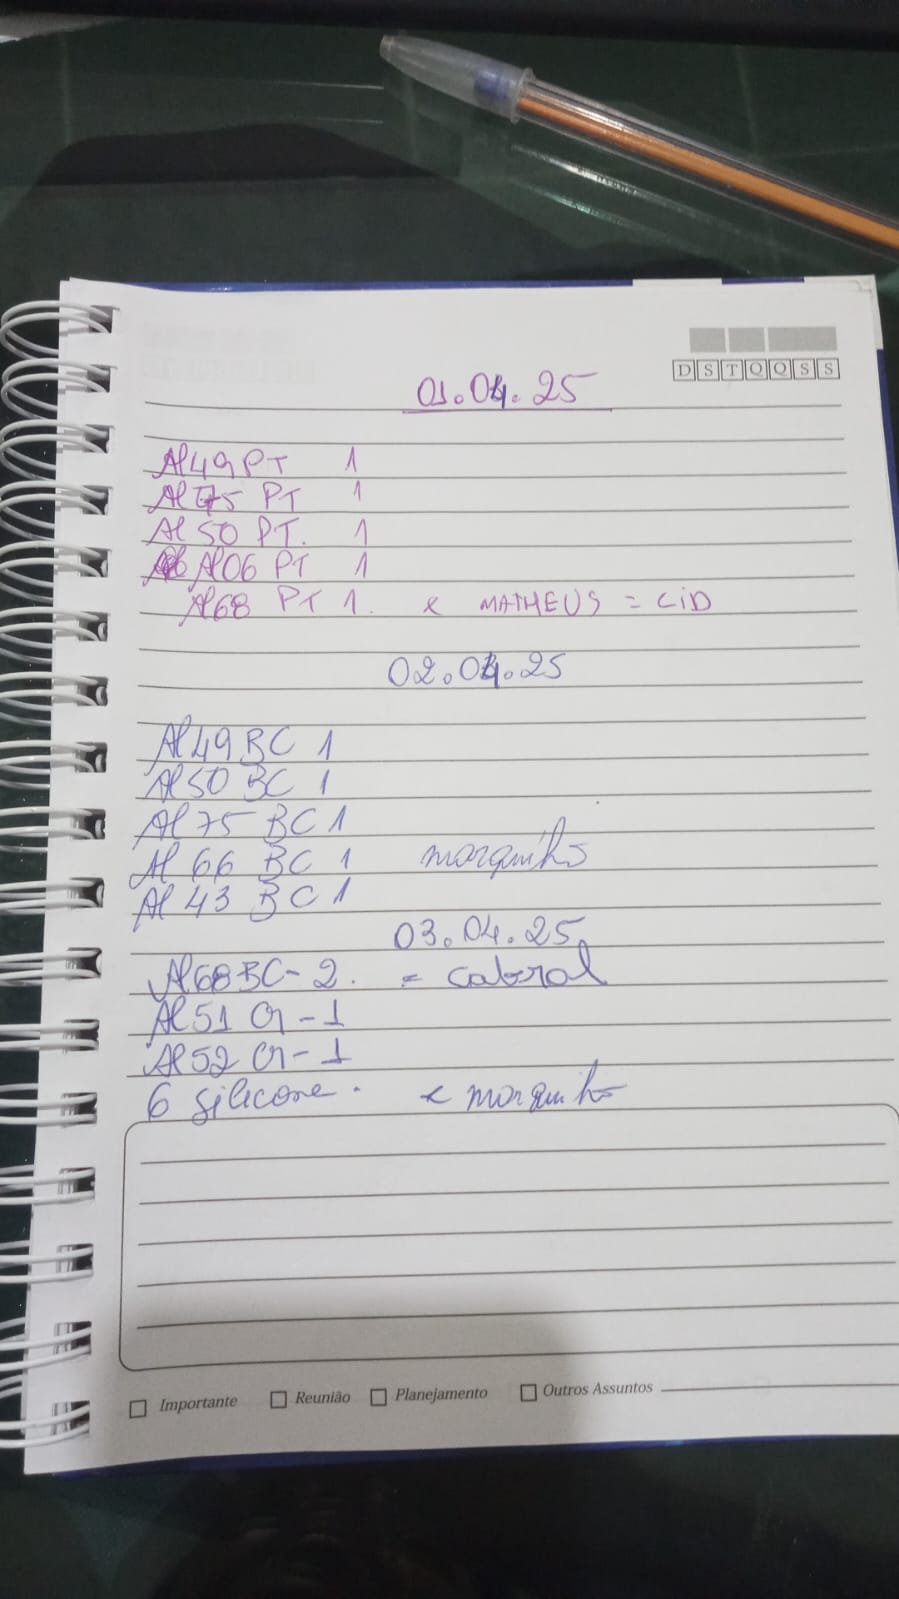 D S T Q Q S S
01.04.25
Al 49 PT 1
Al 75 PT 1
Al 50 PT. 1
Al 06 PT 1
Al 68 PT 1. < MATHEUS = CiD
02.04.25
Al 49 BC 1
Al 50 BC 1
Al 75 BC 1
Al 66 BC 1 marquinho
Al 43 BC 1
03.04.25
Al 68 BC - 2. = Cabral
Al 51 - 1
Al 52 - 1
6 silicone. < marquinho
Importante Reunião Planejamento Outros Assuntos